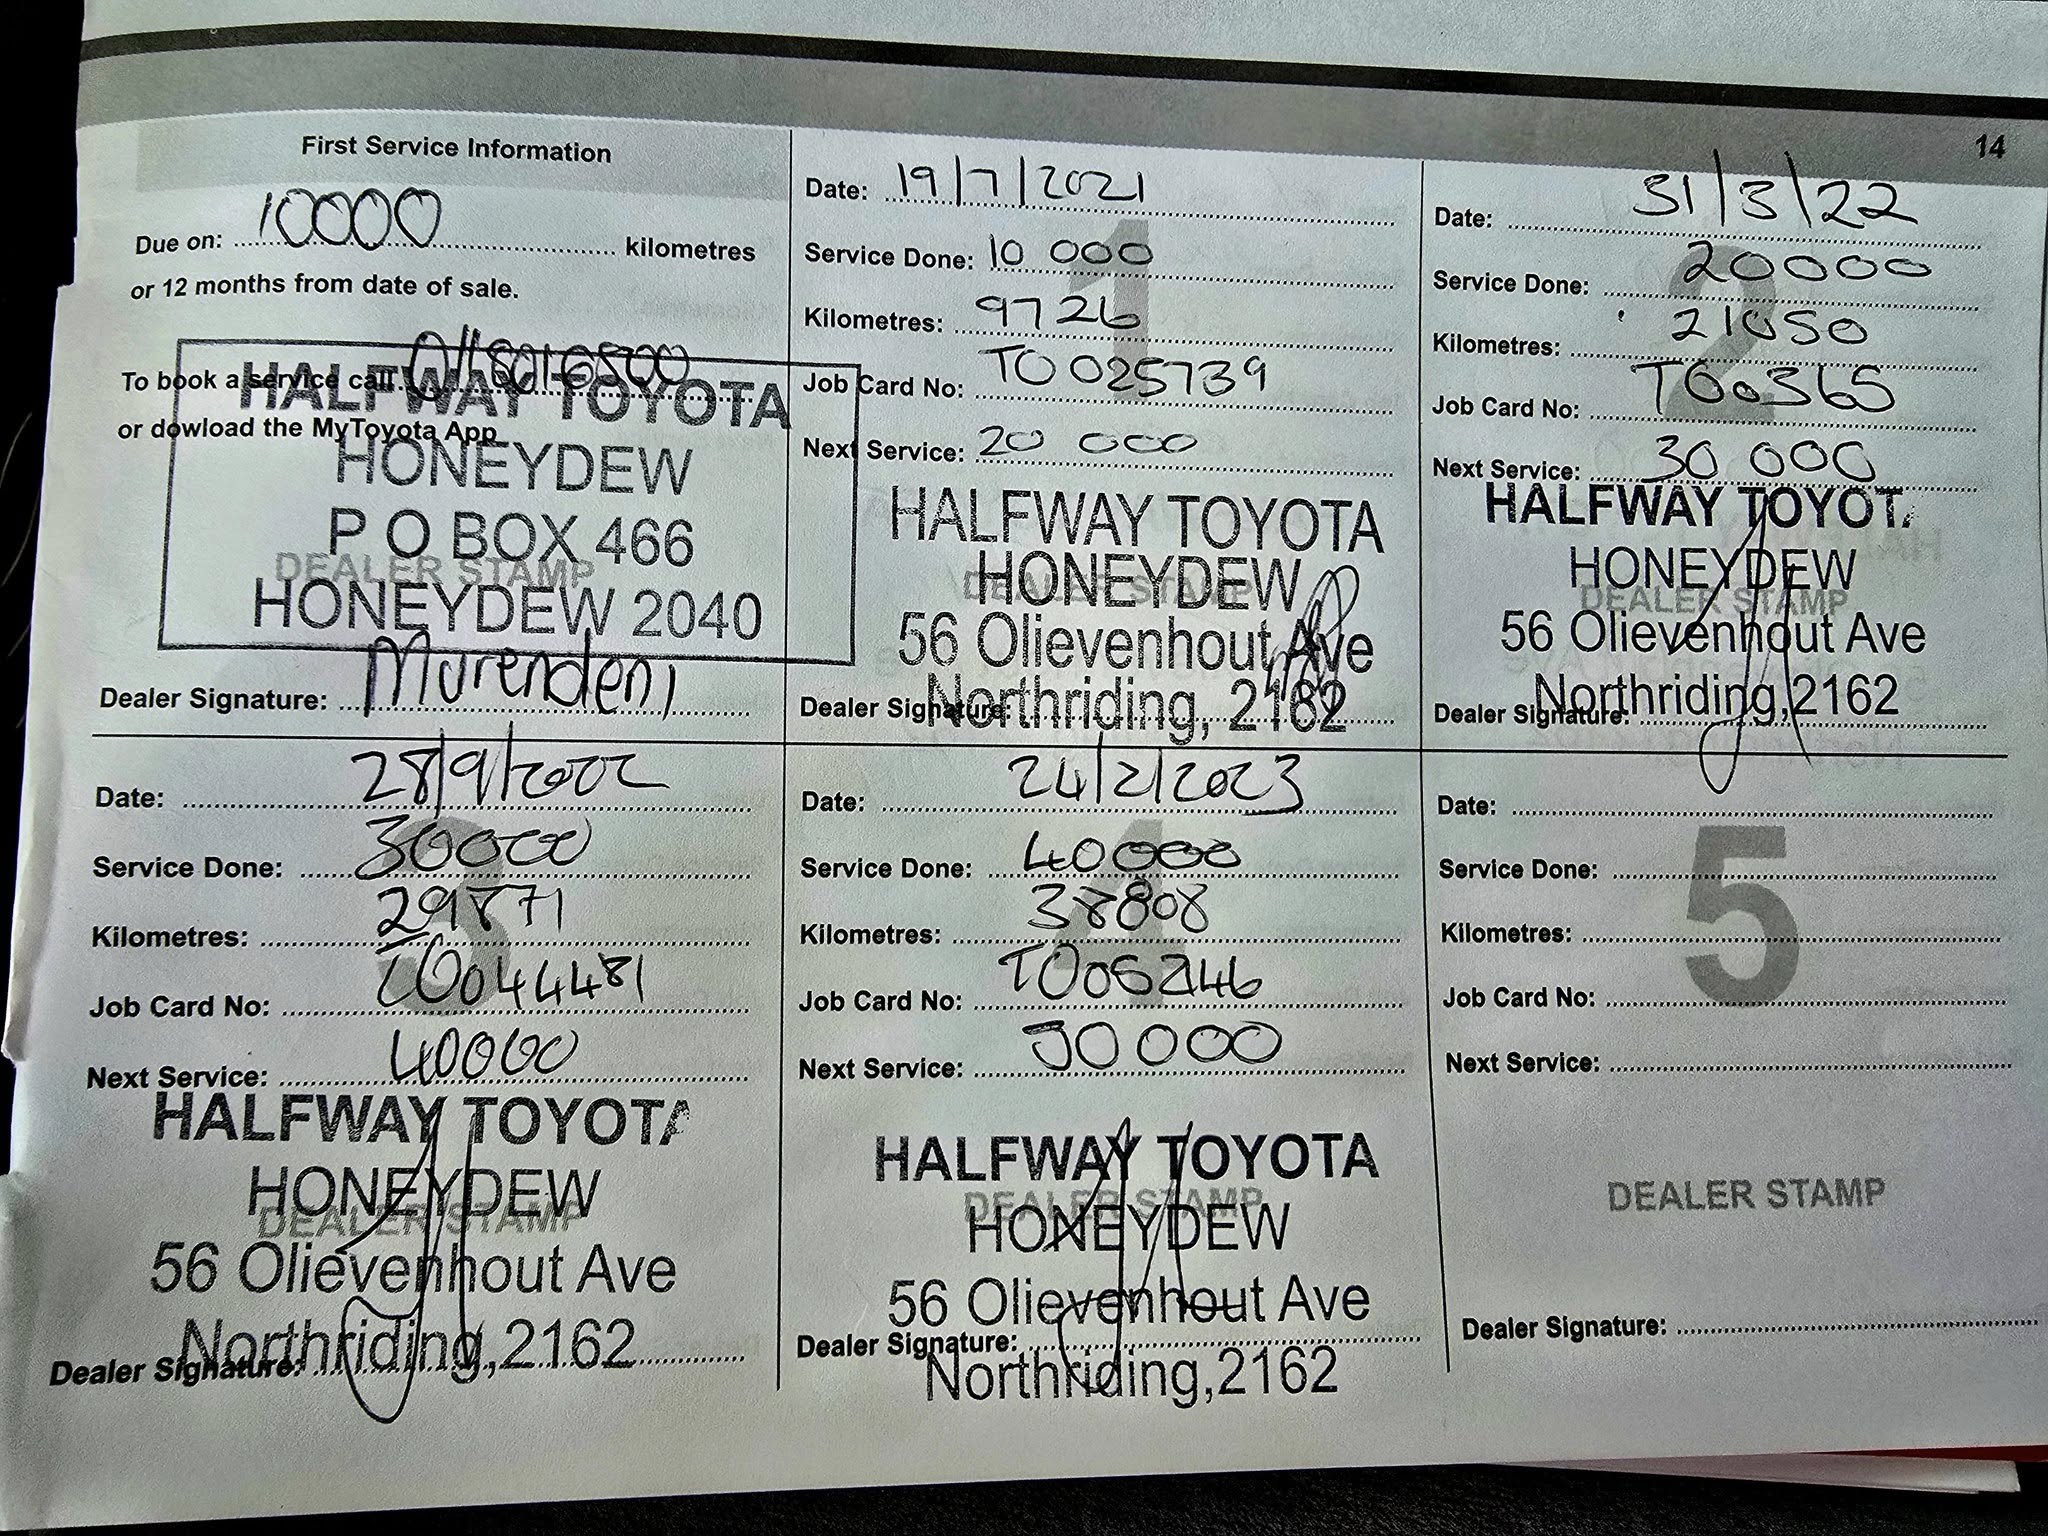 14
First Service Information
Due on: 10000 kilometres
or 12 months from date of sale.
To book a service call 0118016500
or dowload the MyToyota App
DEALER STAMP
HALFWAY TOYOTA
HONEYDEW
P O BOX 466
HONEYDEW 2040
Dealer Signature: Murendeni
1
Date: 19/7/2021
Service Done: 10 000
Kilometres: 9726
Job Card No: TO025739
Next Service: 20 000
DEALER STAMP
HALFWAY TOYOTA
HONEYDEW
56 Olievenhout Ave
Northriding, 2162
Dealer Signature:
2
Date: 31/3/22
Service Done: 20000
Kilometres: 21050
Job Card No:
Next Service: 30 000
DEALER STAMP
HALFWAY TOYOTA
HONEYDEW
56 Olievenhout Ave
Northriding,2162
Dealer Signature:
3
Date: 28/9/2022
Service Done: 30000
Kilometres: 29871
Job Card No: TO044481
Next Service: 40000
DEALER STAMP
HALFWAY TOYOTA
HONEYDEW
56 Olievenhout Ave
Northriding,2162
Dealer Signature:
4
Date: 24/2/2023
Service Done: 40000
Kilometres: 38808
Job Card No:
Next Service: 50000
DEALER STAMP
HALFWAY TOYOTA
HONEYDEW
56 Olievenhout Ave
Northriding,2162
Dealer Signature:
5
Date:
Service Done:
Kilometres:
Job Card No:
Next Service:
DEALER STAMP
Dealer Signature: